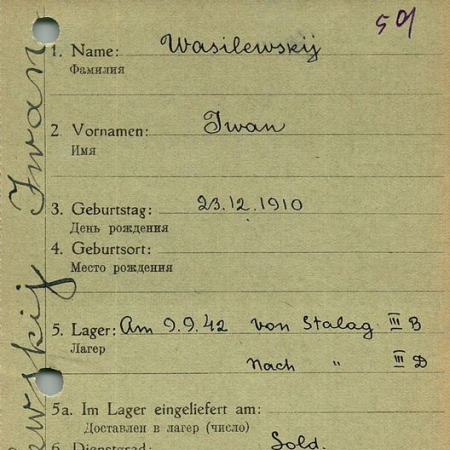 501
1. Name: Wasilewskij
Фамилия
2 Vornamen: Iwan
Имя
3. Geburtstag: 23.12.1910
День рождения
4. Geburtsort:
Место рождения
5. Lager: Am 9.9.42 von Stalag III B
Лагер
Nach " III D
5a. Im Lager eingeliefert am:
Доставлен в лагер (число)
6. Dienstgrad: Sold.
ewskij Iwan